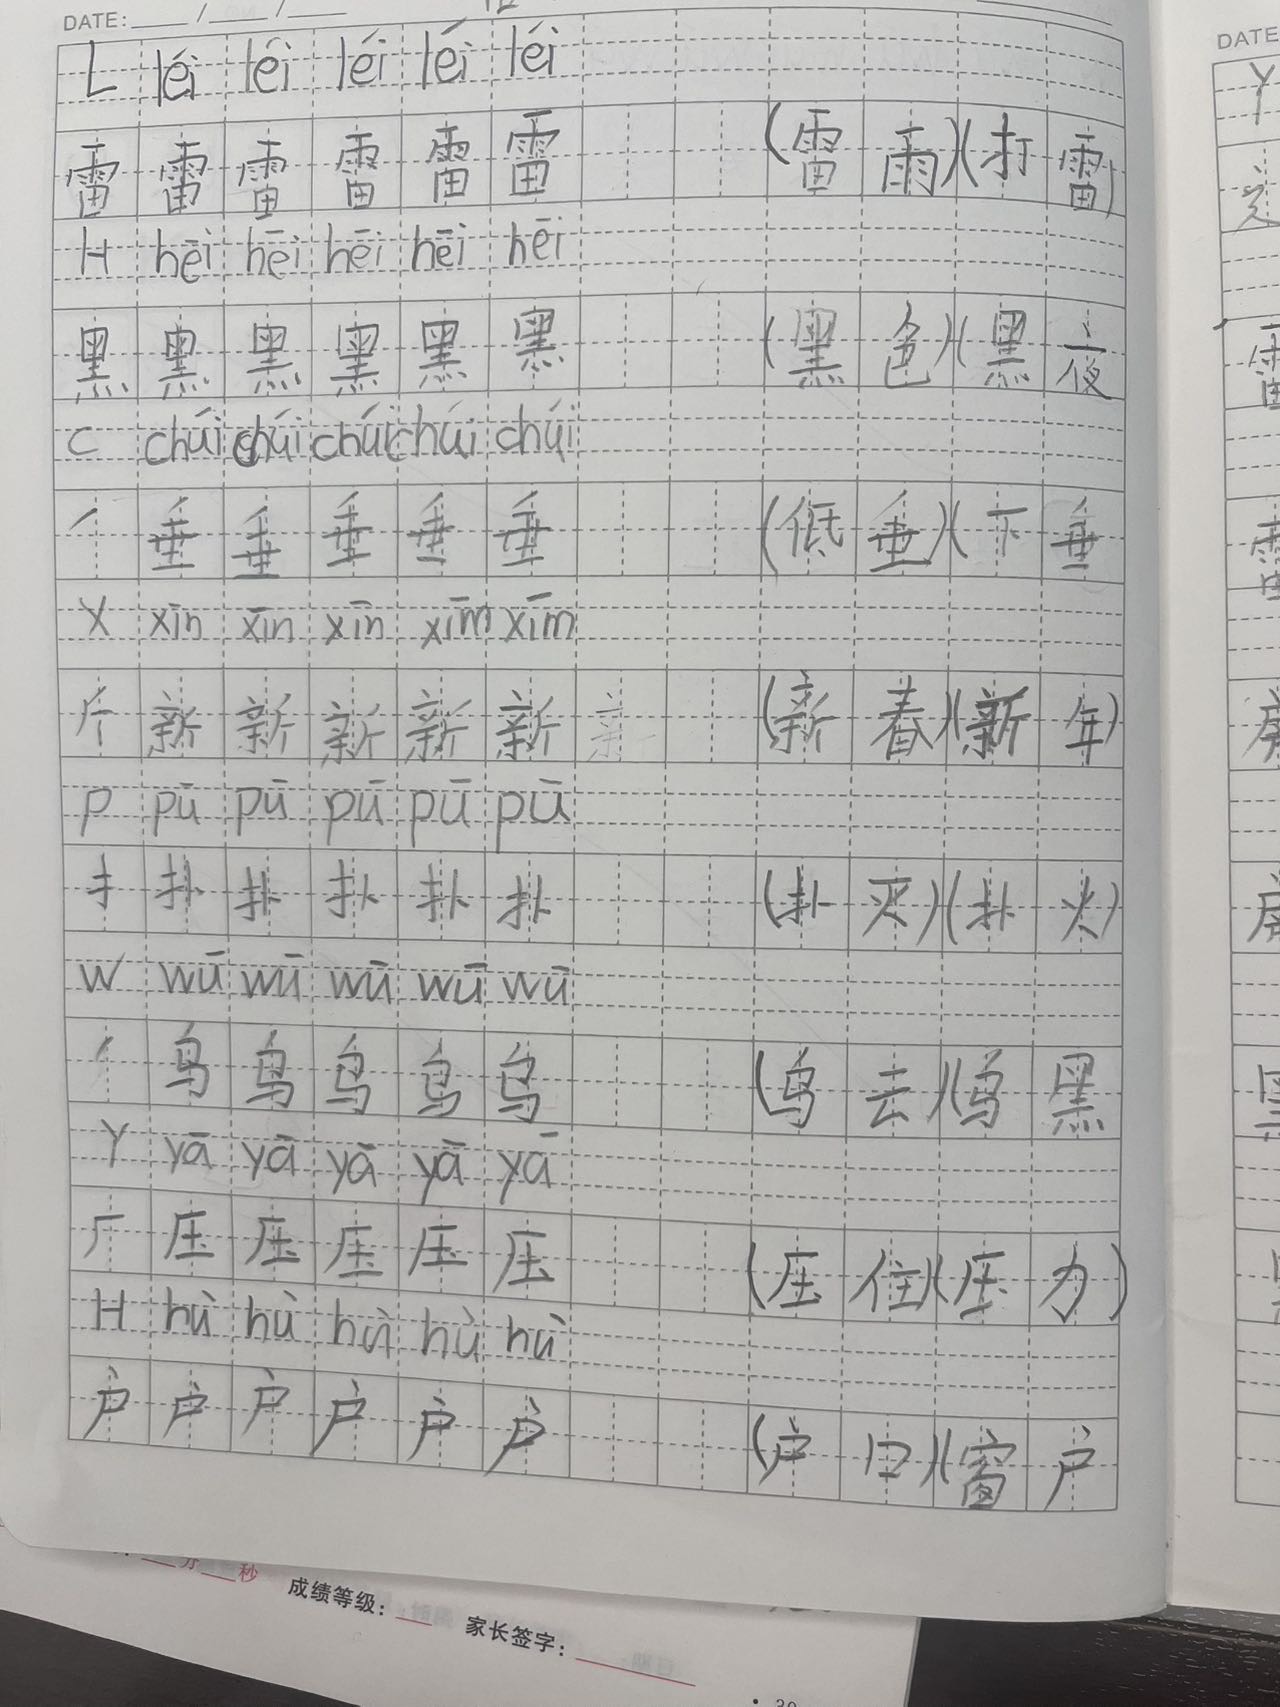 DATE: / /
L léi léi léi léi léi
雷 雷 雷 雷 雷 雷 (雷雨)(打雷)
H hēi hēi hēi hēi hēi
黑 黑 黑 黑 黑 黑 (黑色)(黑夜
C chúi chúi chúi chúi chúi
丿 垂 垂 垂 垂 垂 (低垂)(下垂
X xīn xīn xīn xīm xīm
斤 新 新 新 新 新 亲 (新春)(新年)
P pū pū pū pū pū
扌 扑 扑 扑 扑 扑 (扑灭)(扑火)
W wū wū wū wū wū
丿 乌 乌 乌 乌 乌 (乌云)(乌黑
Y yā yā yā yā yā
厂 压 压 压 压 压 (压住)(压力)
H hù hù hù hù hù
户 户 户 户 户 户 (户口)(窗户
分 秒 成绩等级: 家长签字:
DATE
Y